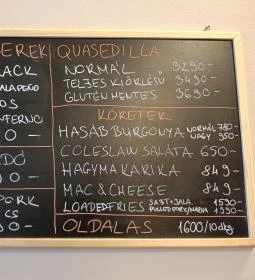 EREK
ACK
ALAPEÑO
OS
NFERNO
0 -
DÓ
0 -
PORK
CS
0 -
QUASEDILLA
NORMÁL 3290-
TELJES KIŐRLÉSŰ 3490-
GLUTÉNMENTES 3690-
KÖRETEK
HASÁBBURGONYA NORMÁL 780-
NAGY 950-
COLESLAW SALÁTA 650-
HAGYMAKARIKA 849-
MAC & CHEESE 849-
LOADEDFRIES SAJT+JALA 1590-
PULLED PORK/MARHA 1990-
OLDALAS 1600/10dkg